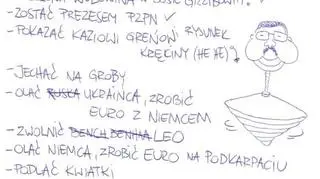 - ZOSTAĆ PREZESEM PZPN ✓
- POKAZAĆ KAZIOWI GRENIOWI RYSUNEK KRĘCINY (HE HE)
- JECHAĆ NA GROBY
- OLAĆ RUSKA UKRAIŃCA, ZROBIĆ
EURO Z NIEMCEM
- ZWOLNIĆ BENCH BENHA LEO
- OLAĆ NIEMCA, ZROBIĆ EURO NA PODKARPACIU
- PODLAĆ KWIATKI